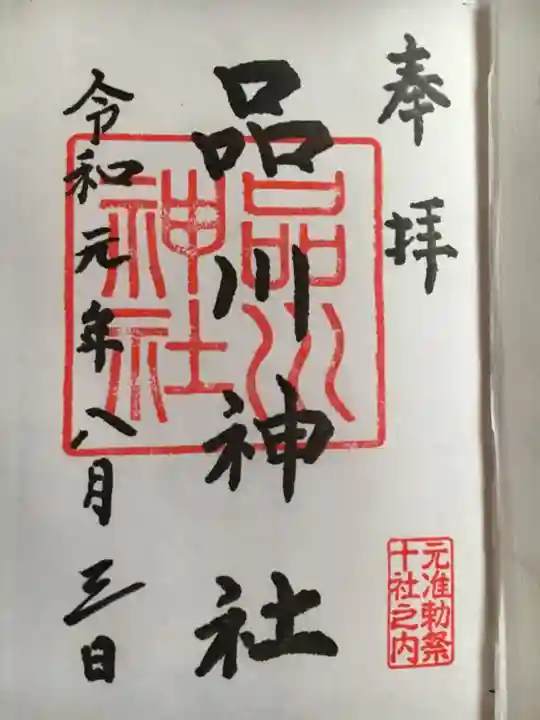 奉拝
品川神社
令和元年八月三日
品川
神社
元准勅祭
十社之内